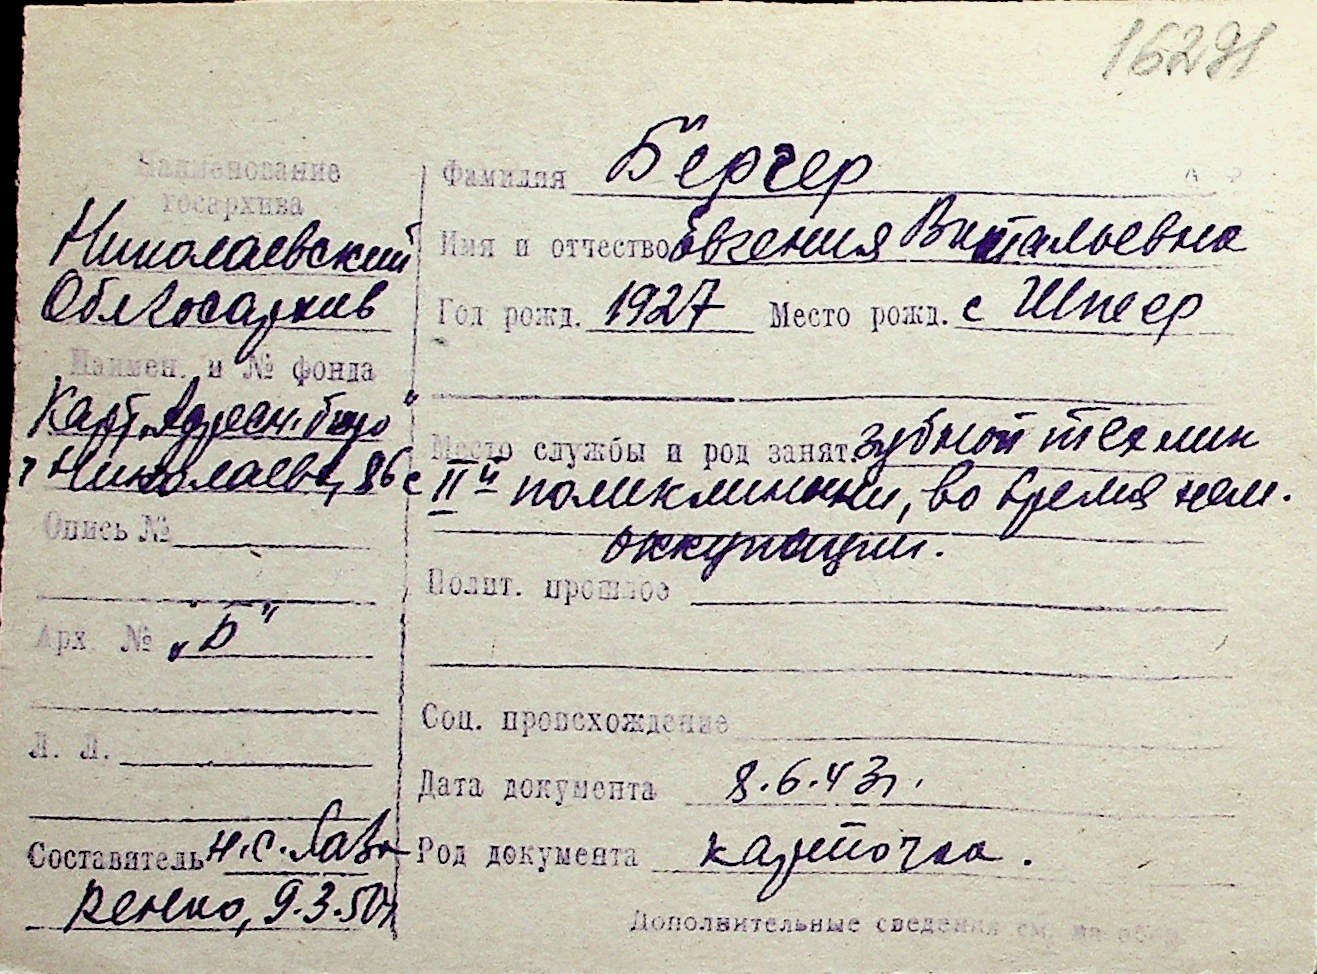 16291
Наименование
госархива
Николаевский
Облгосархив
Наимен. и № фонда
Карт. „Адресн. бюро"
г Николаева, 86 с
Опись №
Арх. № „Б"
Л. Л.
Составитель Н.С. Лав-
ренко, 9.3.50г
Фамилия Бергер
Имя и отчество Евгения Витальевна
Год рожд. 1927 Место рожд. с Шпеер
Место службы и род занят. зубной техник
IIй поликлиники, во время нем.
оккупации.
Полит. прошлое
Соц. происхождение
Дата документа 8.6.43г.
Род документа карточка.
Дополнительные сведения см. на обор.